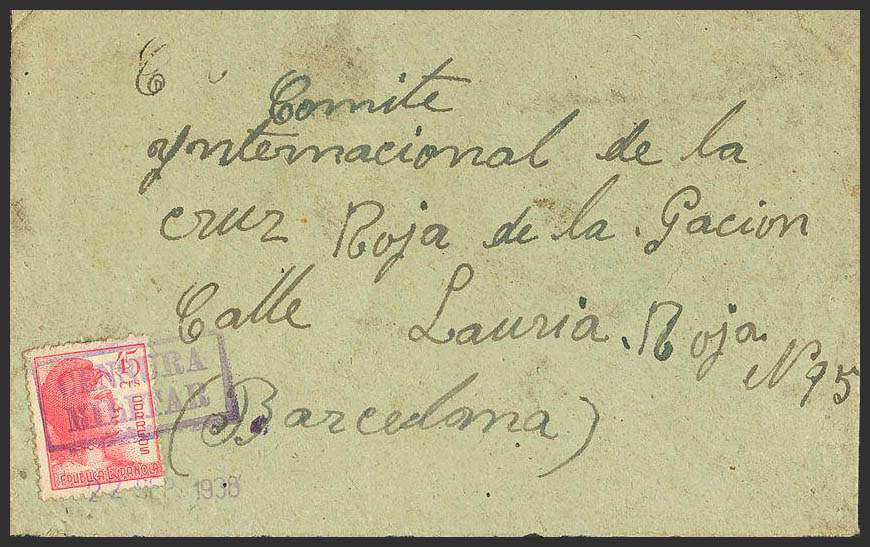 C
Comite
Ynternacional de la
cruz Roja de la Gacion
Calle Lauria. Roja
Nº 95
(Barcelona)
45
CTS.
CORREOS
REPUBLICA ESPAÑOLA
CENSURA
MILITAR
22 SEP. 1938